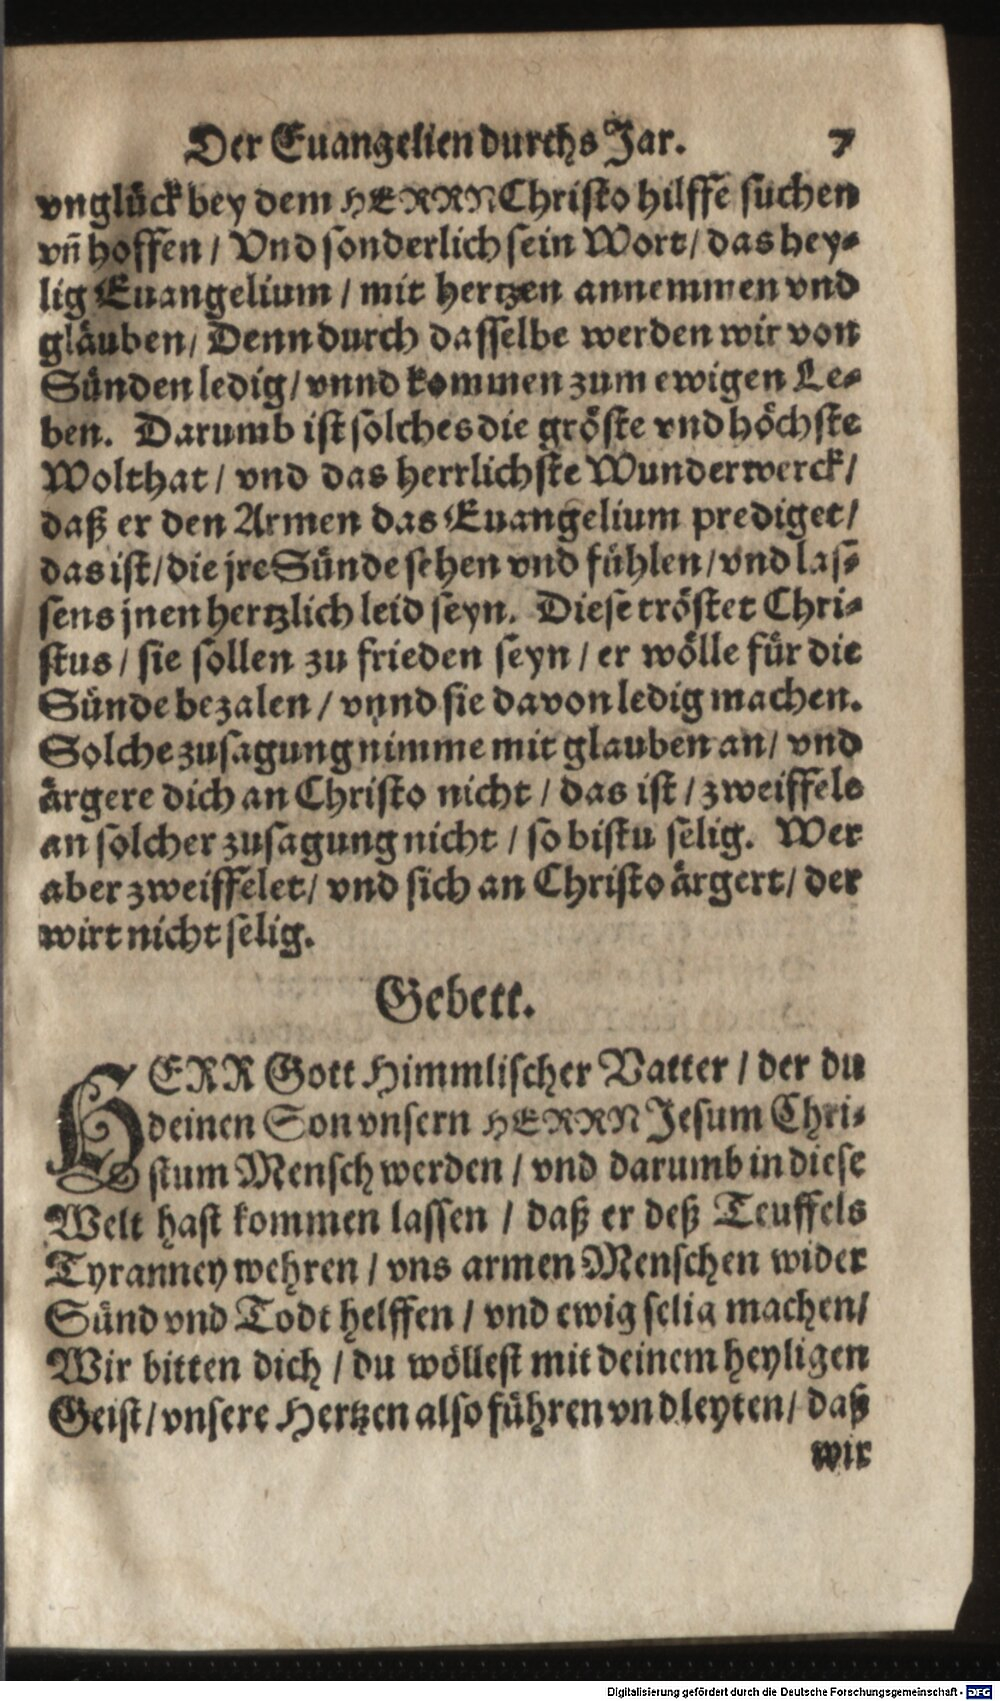 Der Euangelien durchs Jar. 7
vnglück bey dem HERRN Christo hilffe suchen
vñ hoffen / Vnd sonderlich sein Wort / das hey-
lig Euangelium / mit hertzen annemmen vnd
gläuben / Denn durch dasselbe werden wir von
Sünden ledig / vnnd kommen zum ewigen Le-
ben. Darumb ist solches die gröste vnd höchste
Wolthat / vnd das herrlichste Wunderwerck /
daß er den Armen das Euangelium prediget /
das ist / die jre Sünde sehen vnd fühlen / vnd las-
sens jnen hertzlich leid seyn. Diese tröstet Chri-
stus / sie sollen zu frieden seyn / er wölle für die
Sünde bezalen / vnnd sie davon ledig machen.
Solche zusagung nimme mit glauben an / vnd
ärgere dich an Christo nicht / das ist / zweiffele
an solcher zusagung nicht / so bistu selig. Wer
aber zweiffelet / vnd sich an Christo ärgert / der
wirt nicht selig.
Gebett.
HERR Gott Himmlischer Vatter / der du
deinen Son vnsern HERRN Jesum Chri-
stum Mensch werden / vnd darumb in diese
Welt hast kommen lassen / daß er deß Teuffels
Tyranney wehren / vns armen Menschen wider
Sünd vnd Todt helffen / vnd ewig selig machen /
Wir bitten dich / du wöllest mit deinem heyligen
Geist / vnsere Hertzen also führen vnd leyten / daß
wir
Digitalisierung gefördert durch die Deutsche Forschungsgemeinschaft - DFG